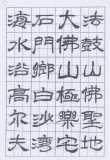 法鼓山佛聖地
大佛山極樂宅
石門鄉白沙灣
海水浴高尔夫